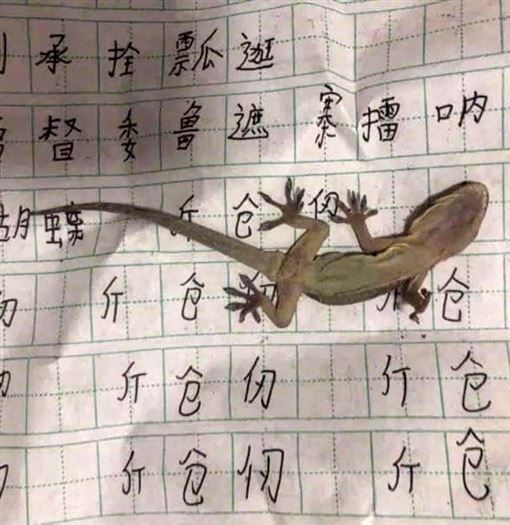 承 拴 瓢 逛
督 委 鲁 遮 寨 擂 呐
胡 蝶 斤 仓 仞
仞 斤 仓 斤 仓
仞 斤 仓 仞 斤 仓
斤 仓 仞 斤 仓